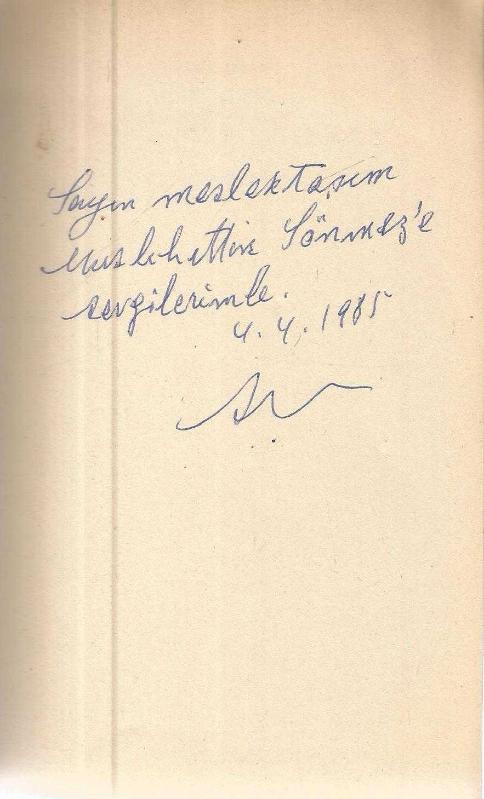 Sayın meslektaşım
Muslihittin Sönmez'e
sevgilerimle.
4.4.1985